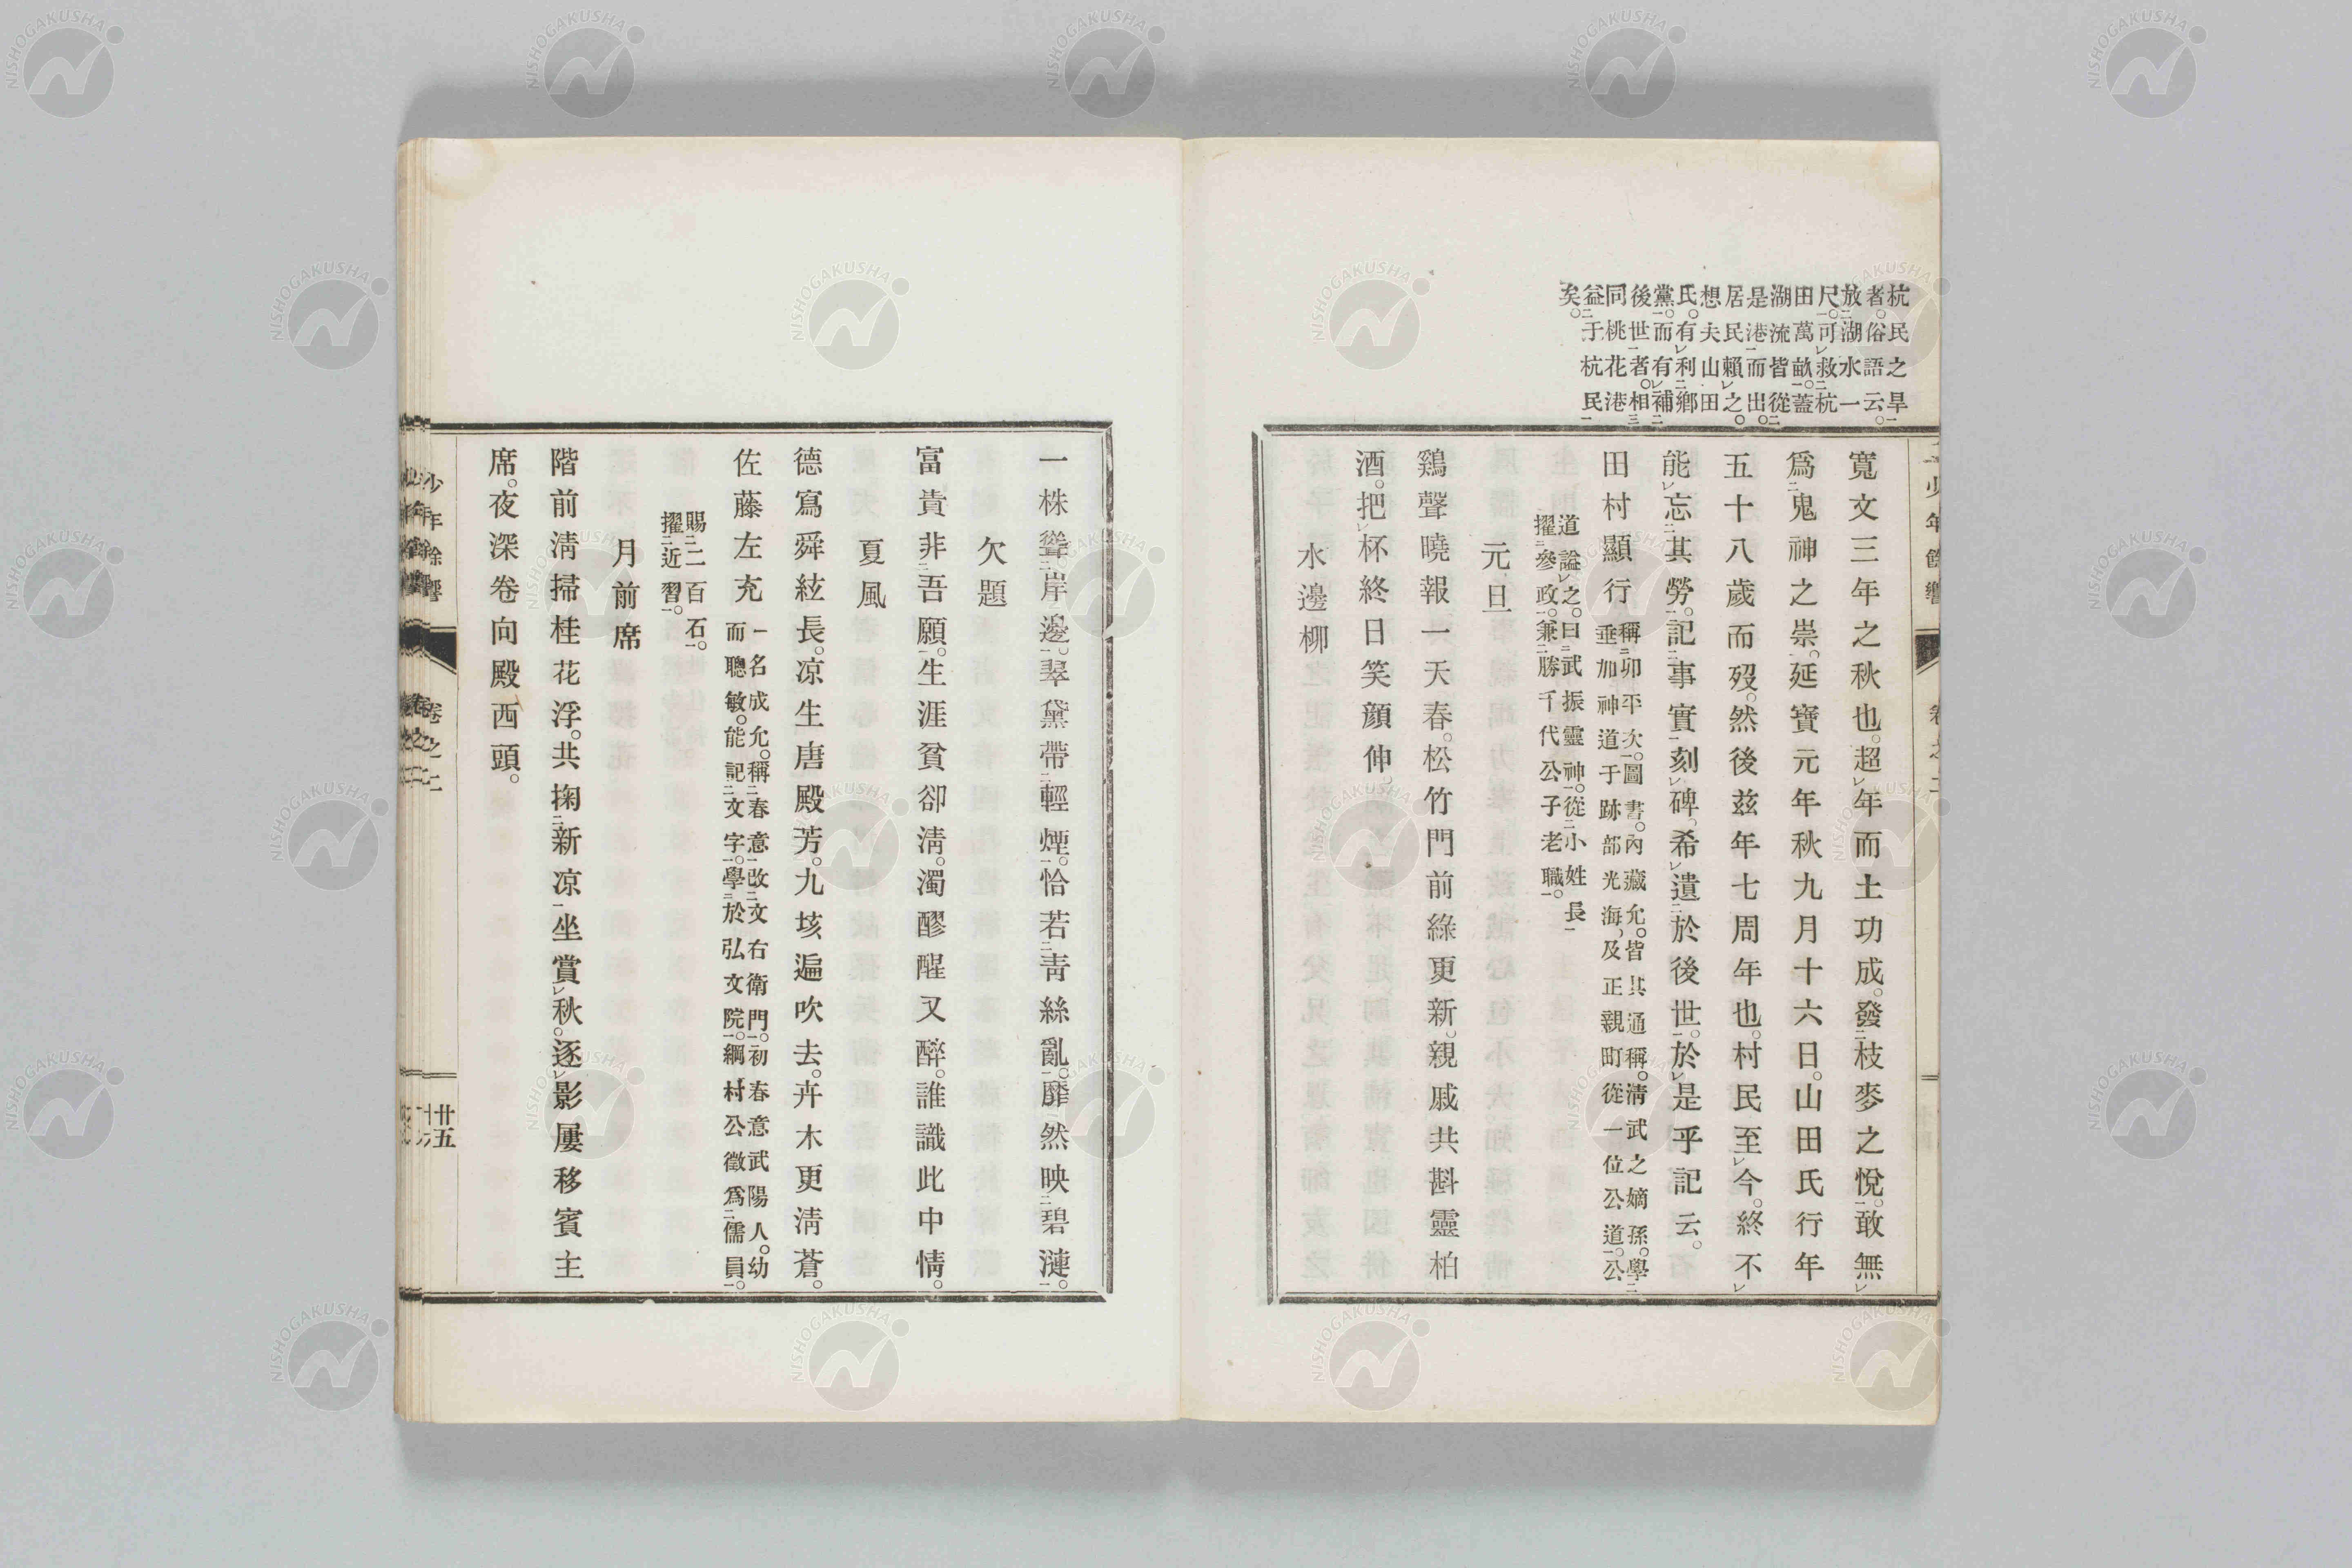 杭民之旱
者。俗語云。
放湖水一
尺。可救杭
田萬畝。蓋
湖流皆從
是港而出。
居民賴之。
想夫山田
氏。有利鄉
黨。而有補
後世者。相
同桃花港
益于杭民
矣。
寬文三年之秋也。超年而土功成。發枝麥之悅。敢無
爲鬼神之崇。延寶元年秋九月十六日。山田氏行年
五十八歲而歿。然後兹年七周年也。村民至今。終不
能忘其勞。記事實刻碑。希遺於後世。於是乎記云。
田村顯行
稱卯平次。圖書。內藏允。皆其通稱。淸武之嫡孫。學
垂加神道于跡部光海。及正親町從一位公道。公
道謚之。曰武振靈神。從小姓長
擢參政。兼勝千代公子老職。
元旦
鷄聲曉報一天春。松竹門前綠更新。親戚共斟靈柏
酒。把杯終日笑顔伸。
水邊柳
一株聳岸邊。翠黛帶輕煙。恰若靑絲亂。靡然映碧漣。
欠題
富貴非吾願。生涯貧卻淸。濁醪醒又醉。誰識此中情。
夏風
德寫舜絃長。凉生唐殿芳。九垓遍吹去。卉木更淸蒼。
佐藤左充
一名成允。稱春意改文右衛門。初春意武陽人。幼
而聰敏。能記文字。學於弘文院。綱村公徵爲儒員。
賜二百石。
擢近習。
月前席
階前淸掃桂花浮。共掬新凉坐賞秋。逐影屢移賓主
席。夜深卷向殿西頭。
少年餘響
卷之二
廿五
NISHOGAKUSHA